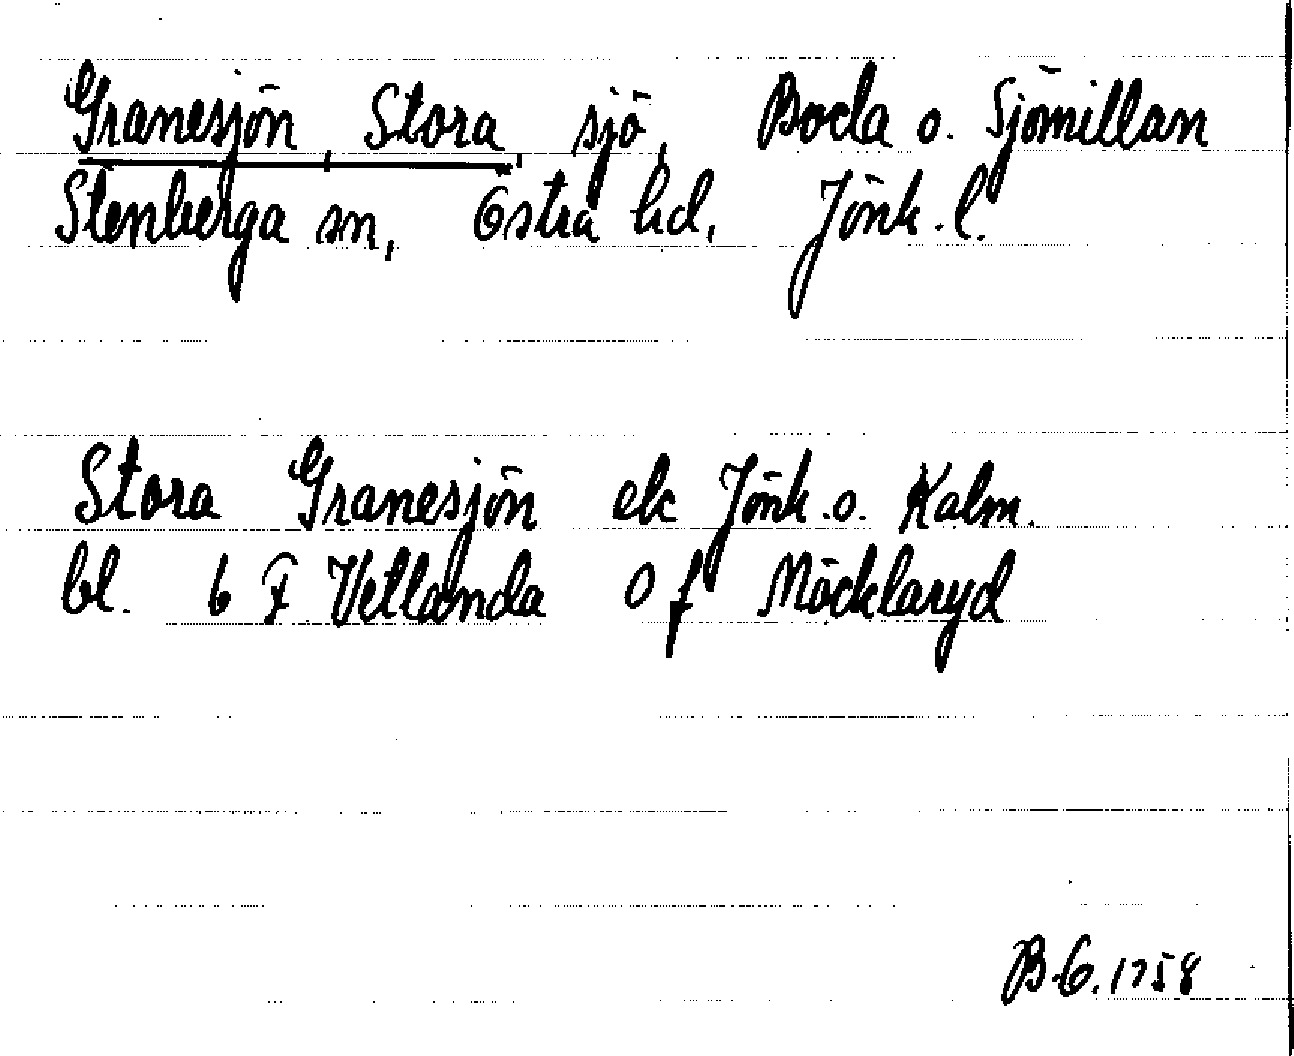 Granesjön, Stora, sjö, Boda o. Sjömillan
Stenberga sn, Östra hd, Jönk. l.
Stora Granesjön ek Jönk. o. Kalm.
bl. 6 F Vetlanda 0 f Möcklaryd
B.G. 1758